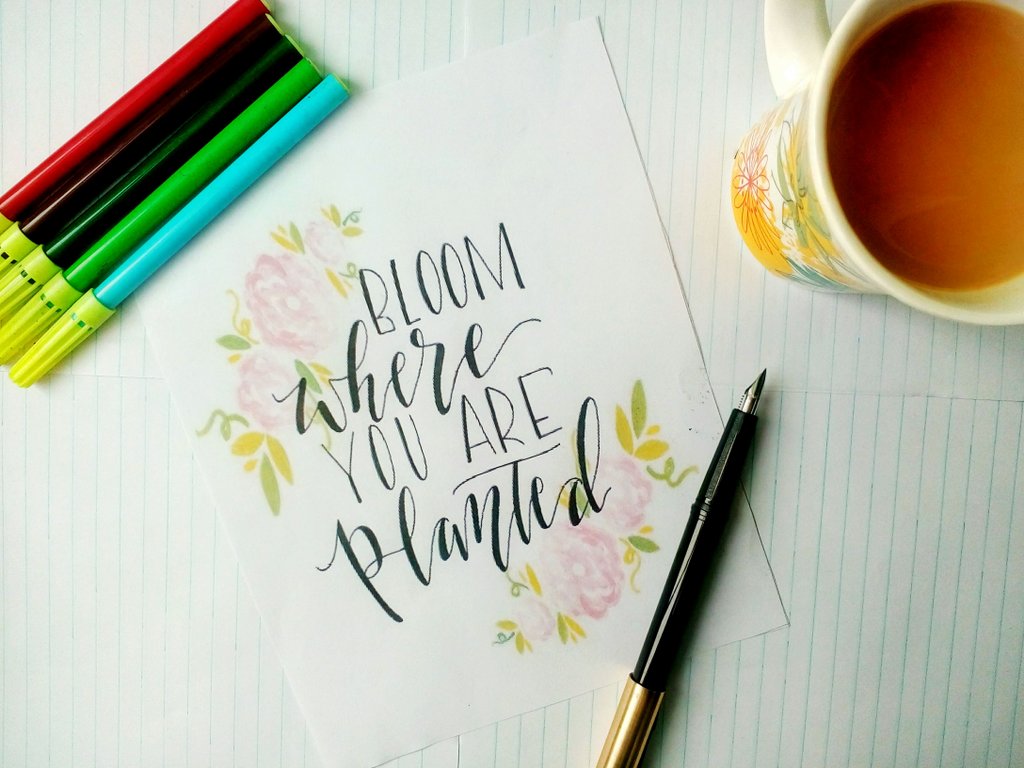 BLOOM
where
YOU ARE
planted